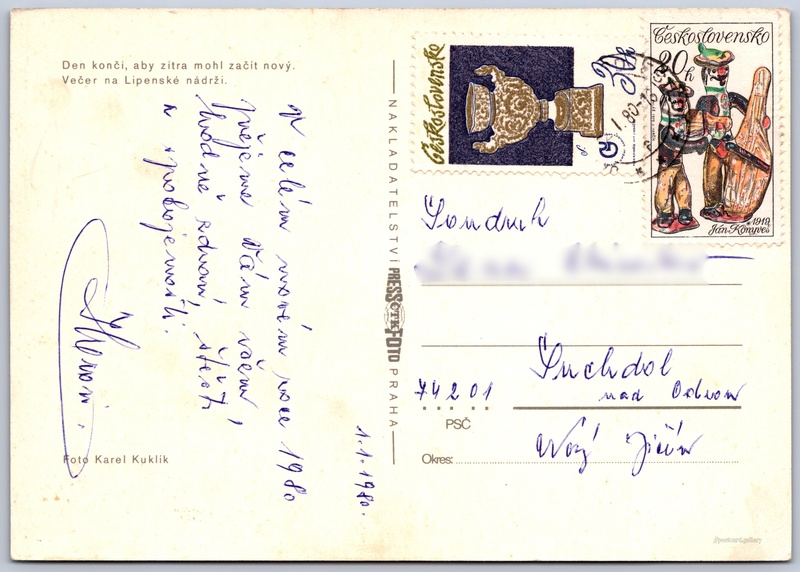 Den končí, aby zítra mohl začít nový.
Večer na Lipenské nádrži.
V celém novém roce 1980
přejeme Vám všem
hodně zdraví, štěstí
a spokojenosti.
1.1.1980.
Foto Karel Kuklík
NAKLADATELSTVÍ PRESSFOTO PRAHA
ČTK
Československo
30h
Československo
20h
1918
Ján Könyveš
Soudruh
Suchdol
nad Odrou
742 01
PSČ
Nový Jičín
Okres: